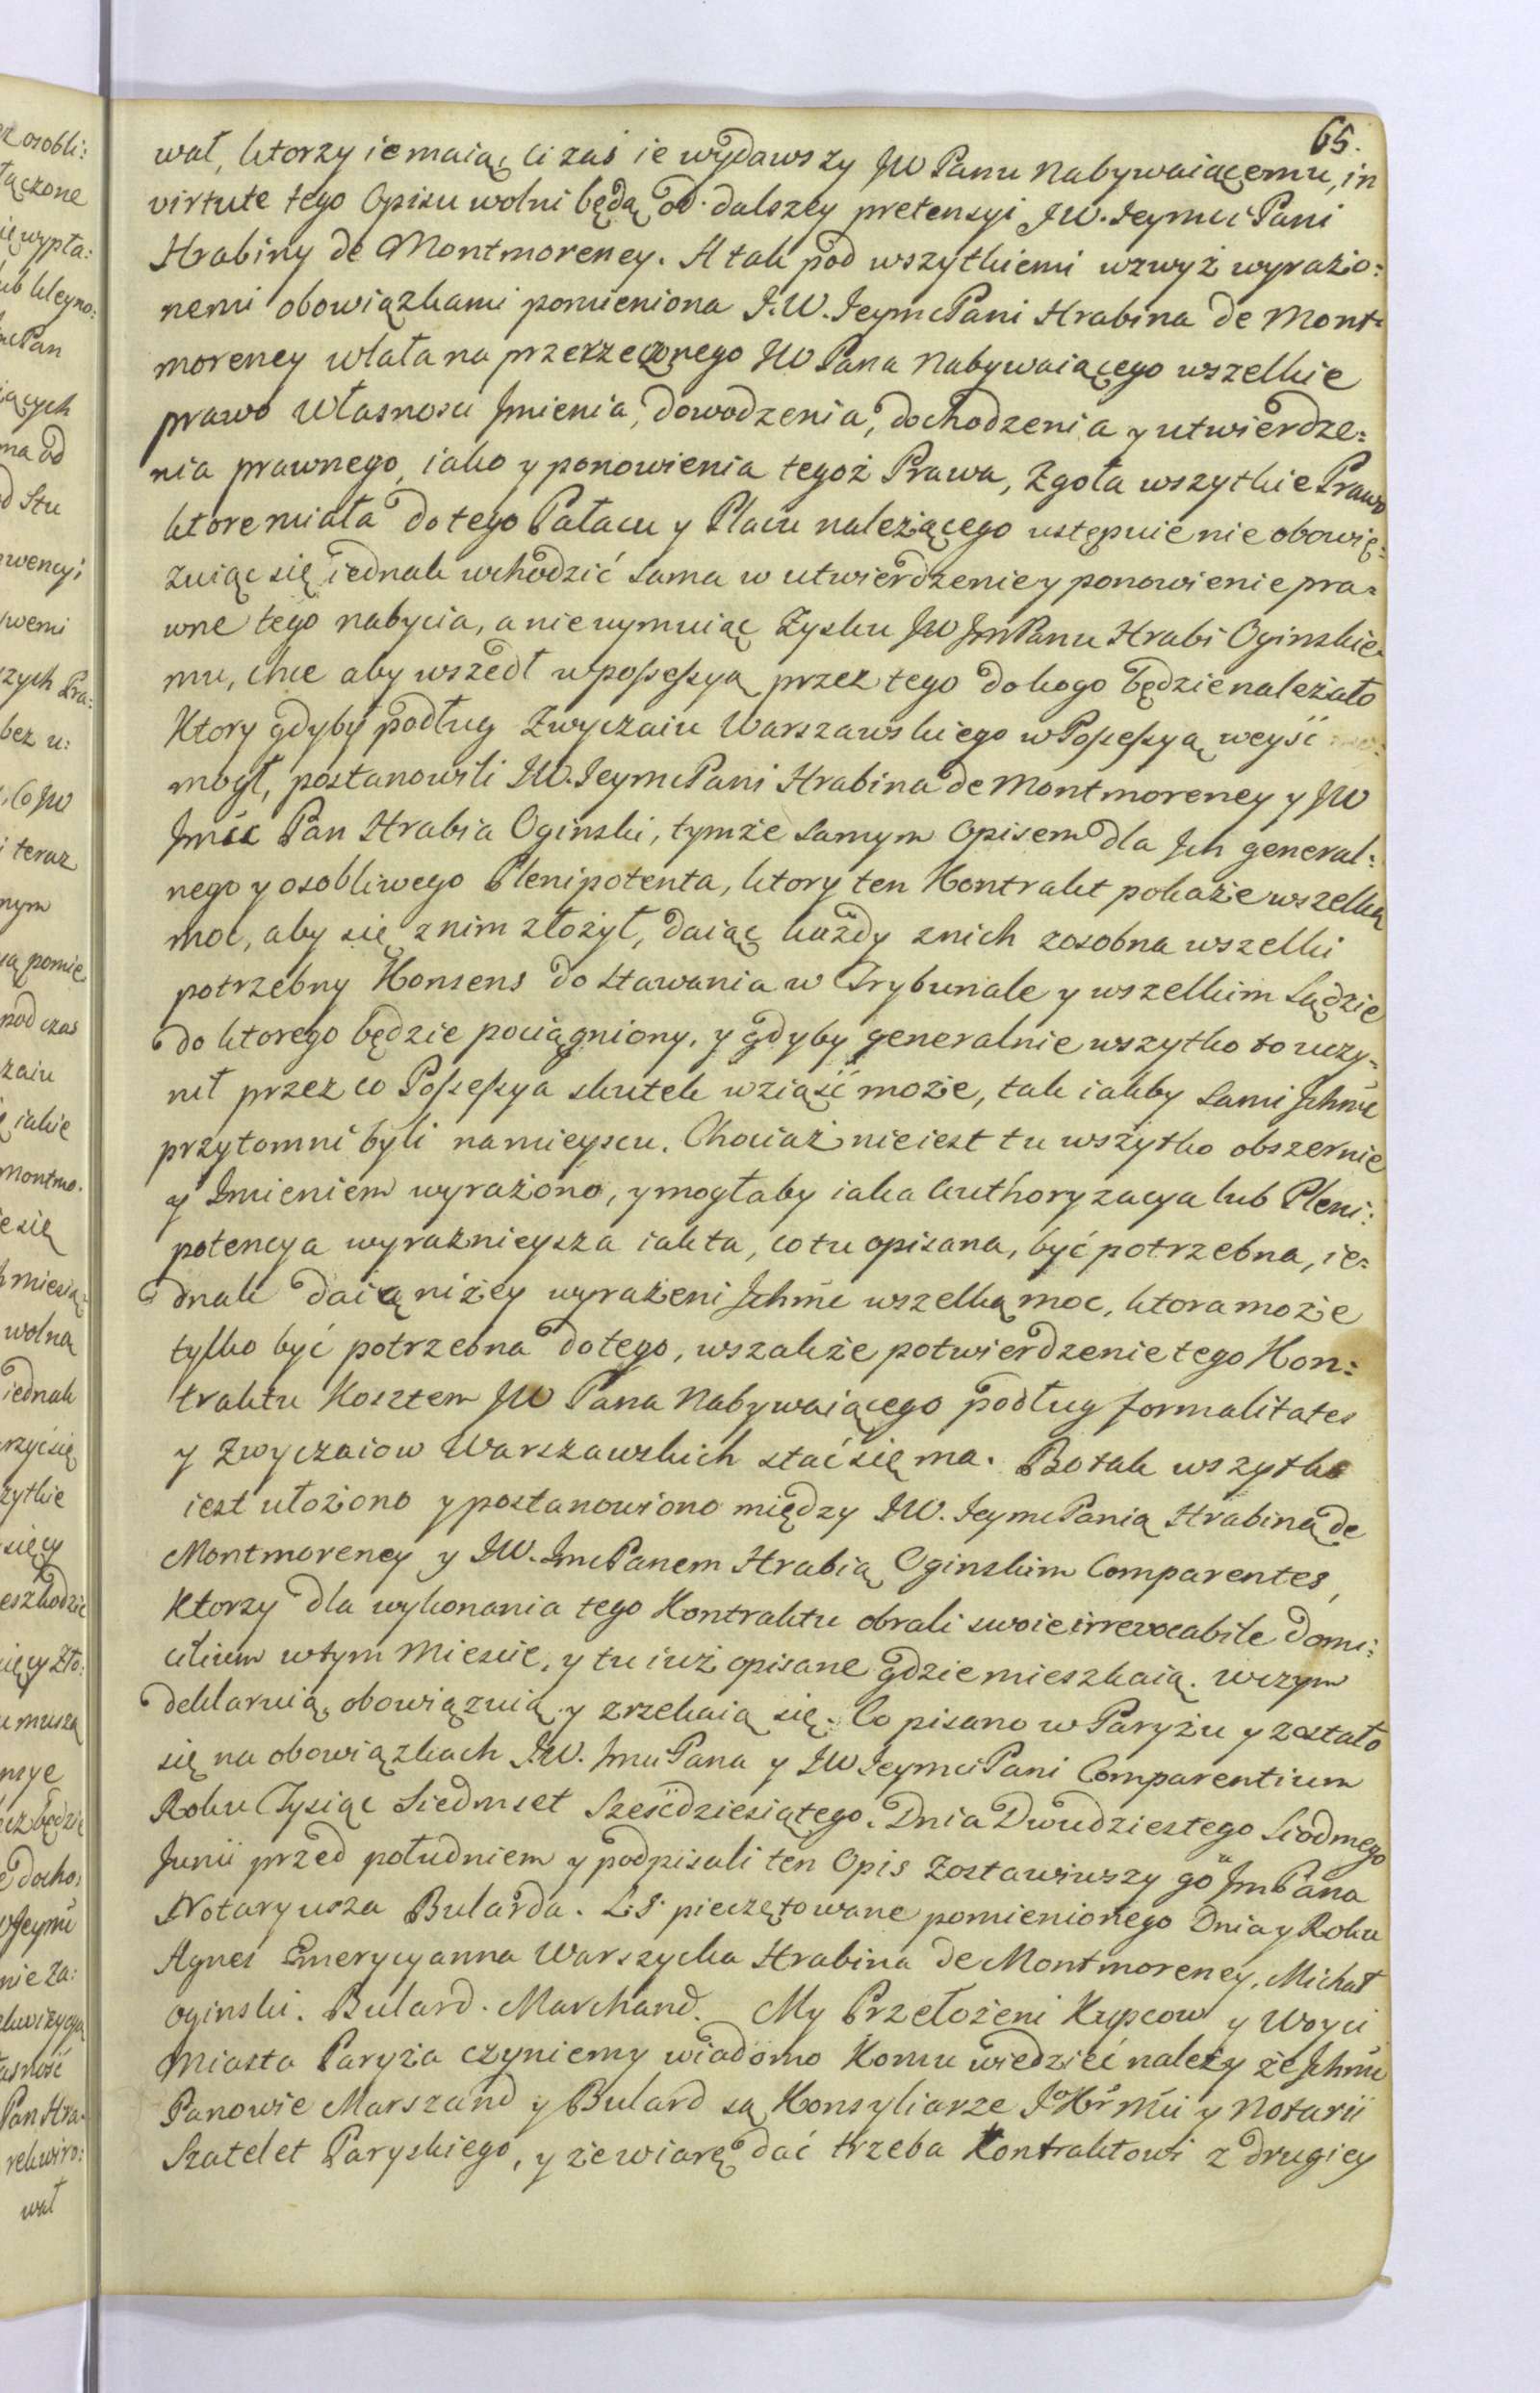 65.
wał, ktorzy ie maią, ci zaś ie wydawszy JW Panu Nabywaiącemu, in
virtute tego Opisu wolni będą od dalszey pretensyi JW. Jeymci Pani
Hrabiny de Montmoreney. A tak pod wszytkiemi wzwyż wyrażo:
nemi obowiązkami pomieniona J.W. Jeymc Pani Hrabina de Mont-
moreney wlała na przerzeczonego JW Pana Nabywaiącego wszelkie
prawo Własnosci Jmienia, dowodzenia, dochodzenia y utwierdze:
nia prawnego, iako y ponowienia tegoż Prawa, Zgoła wszytkie Prawo
ktore miała do tego Pałacu y Placu należiącego ustępuie nie obowię:
zuiąc się iednak wchodzić sama w utwierdzenie y ponowienie pra=
wne tego nabycia, a nie uymuiąc Zysku JW JmPanu Hrabi Oginskie-
mu, chce aby wszedł w possessyą przez tego do kogo będzie należało
Ktory gdyby podług Zwyczaiu Warszawskiego w Possessyą weyść
mogł, postanowili JW. Jeymc Pani Hrabina de Montmoreney y JW
Jmśc Pan Hrabia Oginski, tymże samym Opisem dla Jch general:
nego y osobliwego Plenipotenta, ktory ten Kontrakt pokaże wszelką
moc, aby się z nim złożył, daiąc każdy z nich zosobna wszelki
potrzebny Konsens do stawania w Trybunale y wszelkim Sądzie
do ktorego będzie pociągniony, y gdyby generalnie wszytko to uczy-
nił przez co Possessya skutek wziąść może, tak iakby sami Jchmc
przytomni byli na mieyscu. Chociaż nie iest tu wszytko obszernie
y Jmieniem wyrażono, y mogłaby iaka Authoryzacya lub Pleni:
potencya wyraznieysza iak ta, co tu opisana, być potrzebna, ie-
dnak daią niżey wyrażeni Jchmc wszelką moc, ktora może
tylko być potrzebna do tego, wszakże potwierdzenie tego Kon:
traktu Kosztem JW Pana Nabywaiącego podług formalitates
y Zwyczaiow Warszawskich stać się ma. Bo tak wszytko
iest ułożono y postanowiono między JW. Jeymc Panią Hrabiną de
Montmoreney y JW. Jmc Panem Hrabią Oginskim Comparentes,
Ktorzy dla wykonania tego Kontraktu obrali swoie irrevocabile Domi:
cilium w tym Miescie, y tu iuż opisane gdzie mieszkaią. wczym
deklaruią, obowiązuią y zrzekaią się. Co pisano w Paryżu y zostało
się na obowiązkach JW. Jmci Pana y JW Jeymci Pani Comparentium
Roku Tysiąc Siedmset Sześćdziesiątego. Dnia Dwudziestego Siodmego
Junii przed południem y podpisali ten Opis Zostawiwszy go u JmPana
Notaryusza Bularda. L.S. pieczętowane pomienionego Dnia y Roku
Agnes Emerycyanna Warszycka Hrabina de Montmoreney, Michał
Oginski. Bulard. Marchand. My Przełożeni Kupcow y Woyci
Miasta Paryża czyniemy wiadomo Komu wiedzieć należy że Jchmc
Panowie Marszand y Bulard są Konsyliarze Jo Kr Mci y Notarii
Szatelet Paryskiego, y że wiarę dać trzeba Kontraktowi z drugiey